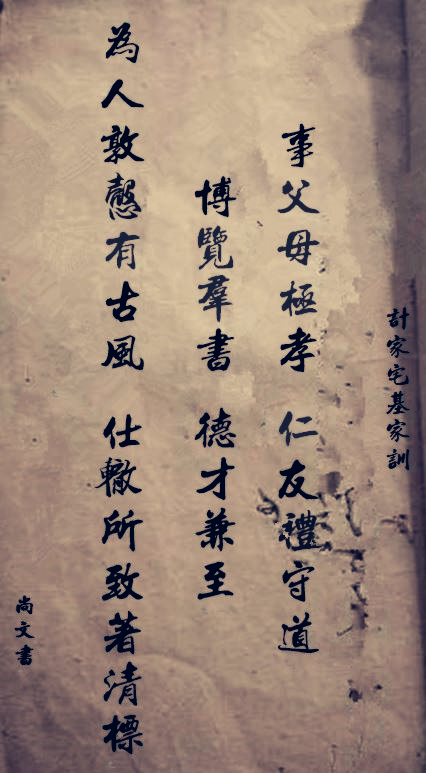 計家宅基家訓
事父母極孝 仁友禮守道
博覽羣書 德才兼至
為人敦愨有古風 仕轍所致著清標
尚文書